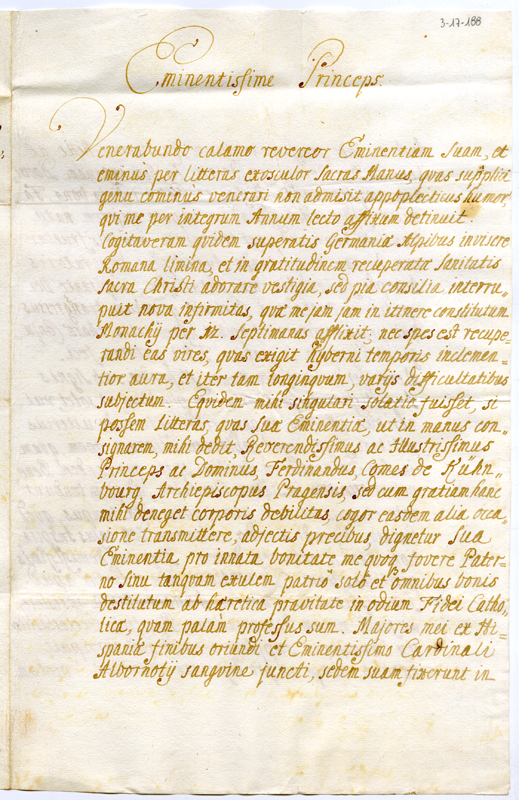 3-17-188
Eminentissime Princeps.
Venerabundo calamo revereor Eminentiam Suam, et
eminus per litteras exosculor Sacras Manus, quas supplici
genu cominus venerari non admisit appoplecticus humor,
qui me per integrum Annum lecto affixum detinuit.
Cogitaveram quidem superatis Germaniæ Alpibus invisere
Romana limina, et in gratitudinem recuperatæ Sanitatis
sacra Christi adorare vestigia, sed pia consilia interru„
puit nova infirmitas, quæ me jam jam in itinere constitutum
Monachÿ per septimanas afflixit, nec spes est recupe„
randi eas vires, quas exigit hÿberni temporis inclemen„
tior aura, et iter tam longinquum, varÿs difficultatibus
subjectum. Equidem mihi singulari solatio fuisset, si
possem litteras, quas Suæ Eminentiæ, ut in manus con„
signarem, mihi dedit, Reverendissimus ac Illustrissimus
Princeps ac Dominus, Ferdinandus, Comes de Kühn„
bourg, Archiepiscopus Pragensis, sed cum gratiam hanc
mihi deneget corporis debilitas, cogor easdem alia occa„
sione transmittere, adjectis precibus, dignetur Sua
Eminentia pro innata bonitate me quoq fovere Pater„
no Sinu tanquam exulem patrio solo et omnibus bonis
destitutum ab hæretica pravitate in odium Fidei Catho„
licæ, quam palam professus sum. Majores mei ex Hi„
spaniæ finibus oriundi et Eminentissimo Cardinali
Albornotÿ sanguine juncti, sedem suam fixerunt in